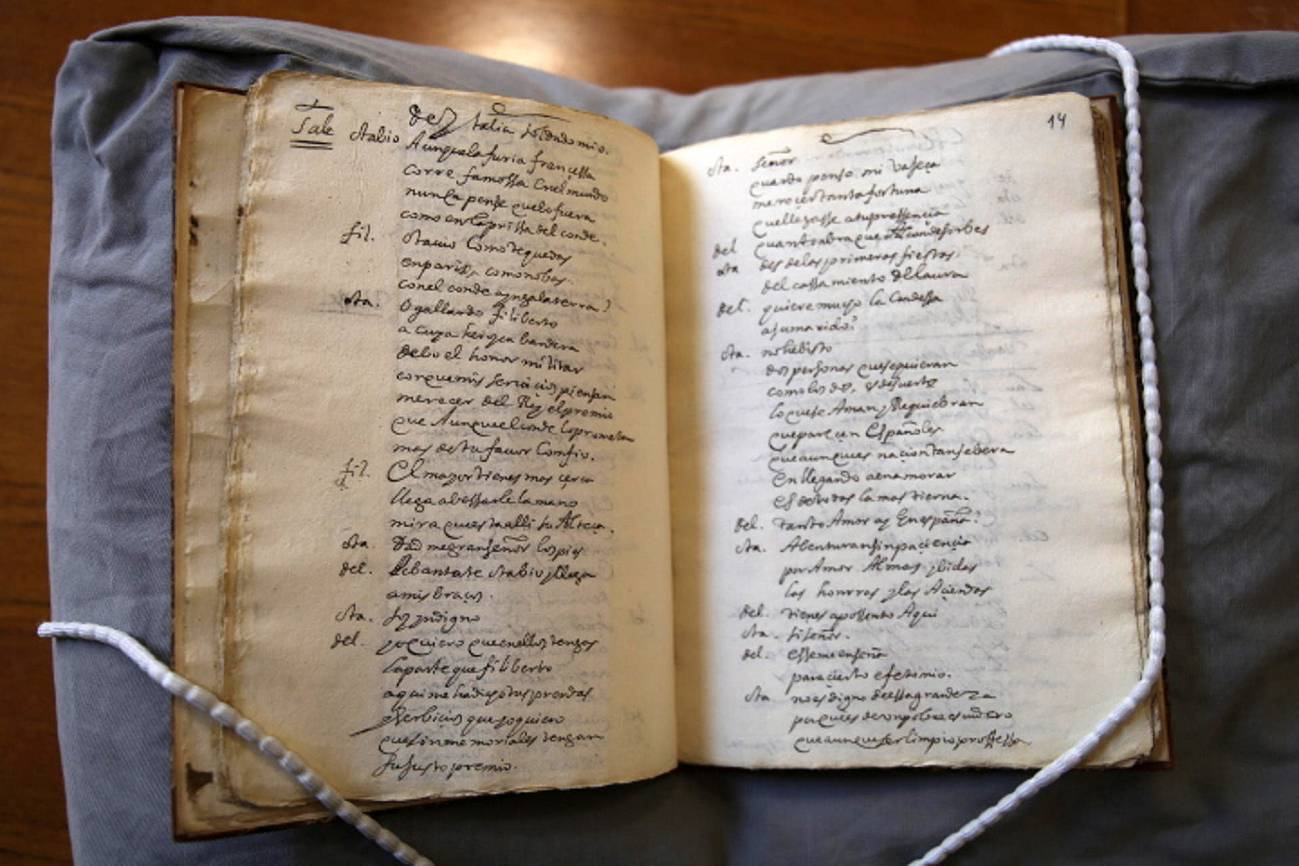 Sale
Otabio
Aunque la furia françessa
corre famossa en el mundo
nunca pense que lo fuera
como en la prissa del conde.
fil. Otauio como te quedas
en paris, como no bas
con el conde a yngalaterra?
ota. O gallardo filiberto
a cuya bandera
debo el honor militar
con que mis seruicios piensan
merecer del Rey el premio
que Aunque el conde lo prometa
mas de tu fauor Confio.
fil. El mayor tienes mas cerca
llega a bessarle la mano
mira que esta alli su Alteça.
ota. Dad me gran señor los pies
del. Lebantate otabio y llega
a mis braços.
ota. soy yndigno
del. yo quiero que en ellos tengas
la parte que filiberto
aqui me ha dicho tus prendas
y serbicios que yo quiero
que sin memoriales tengan
su justo premio.
14
ota. señor
quando penso mi vaxeça
mereçer tanta fortuna
que llegasse a tu pressencia
del quanto abra que el conde
ota des de las primeras fiestas
del cassamiento de laura
del. quiere mucho la Condessa
a su marido?
ota. no he bisto
dos personas que se quieran
como los dos, es de suerte
lo que se Aman y Requiebran
que pareçen Españoles
que aunque es naçion tan sebera
en llegando a enamorar
es de todas la mas tierna.
del. tanto Amor ay en españa?
ota. Abenturan sin paciençia
por Amor Almas y bidas
las honrras y las Açiendas
del. tienes apossento Aqui
ota. si señor.
del. esse me enseña
para cierto efeto mio.
ota no es digno de essa grandeza
porque es de vn pobre escudero
que aunque ser limpio professa